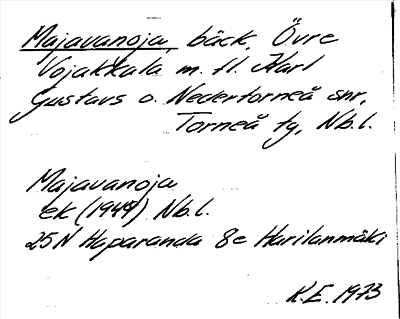 Majavanoja, bäck, Övre
Vojakkala m. fl. Karl
Gustavs o. Nedertorneå snr,
Torneå tg, Nb.l.
Majavanoja
ek (1949) Nb.l.
25N Haparanda 8e Harilanmäki
K.E. 1973